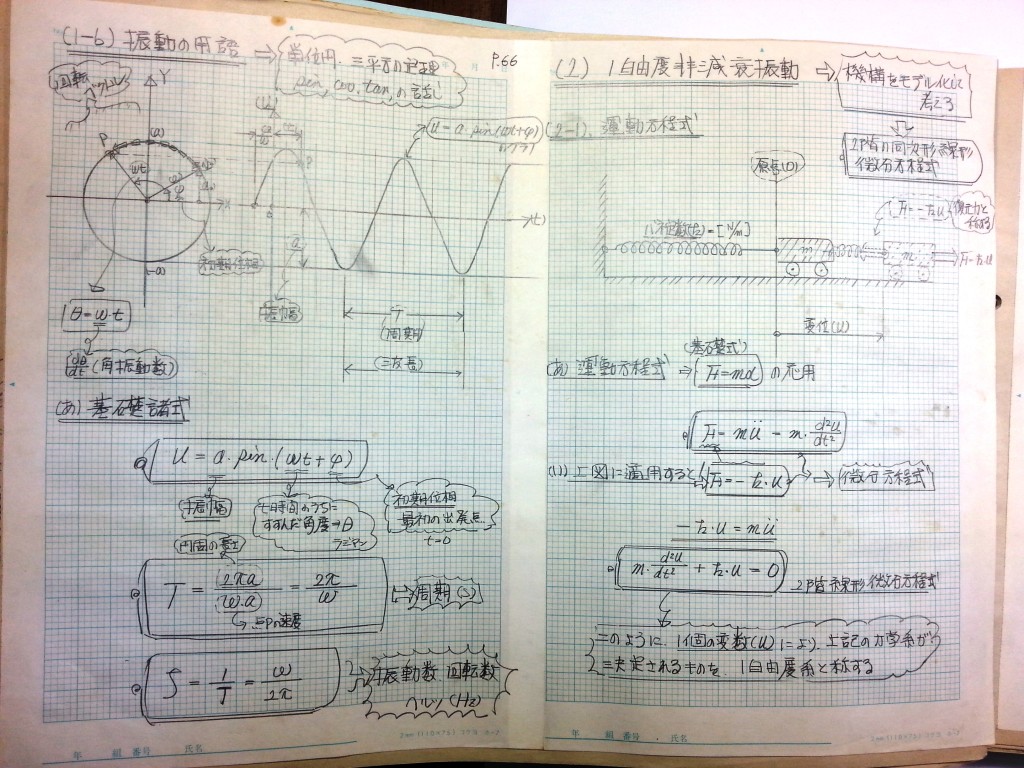 (1-6) 振動の用語 → 単位円. 三平方の定理
sin, cos, tan, の話し
P.66
回転
ベクトル
Y
P
a
ωt
φ
x
-a
初期位相
u = a・sin(ωt+φ)
のグラフ
P
(t)
a
振幅
T
(周期)
(三皮長)
θ = ω・t
dθ/dt (角振動数)
(あ) 基礎諸式
u = a・sin・(ωt + φ)
振幅
t時間のうちに
すすんだ角度→θ
ラジアン
初期位相
最初の出発点
t=0
円周の長さ
T = 2πa/(ω・a) = 2π/ω
周期(s)
速度
f = 1/T = ω/2π
振動数. 回転数
ヘルツ(Hz)
年 組 番号 氏名
(2) 1自由度非減衰振動 ⇒ 機構をモデル化して
考える
(2-1). 運動方程式
2階の同次形線形
微分方程式
原点(O)
F = -k・u
復元力と
称する
バネ定数(k)=[N/m]
m
m
F = k・u
変位(u)
(基礎式)
(あ) 運動方程式 ⇒ F = mα の応用
F = mü = m・d²u/dt²
(1) 上図に適用すると F = -k・u
微分方程式
-k・u = mü
m・d²u/dt² + k・u = 0
2階線形微分方程式
このように. 1個の変数(u)により. 上記の力学系が
決定されるものを. 1自由度系と称する
年 組 番号 氏名